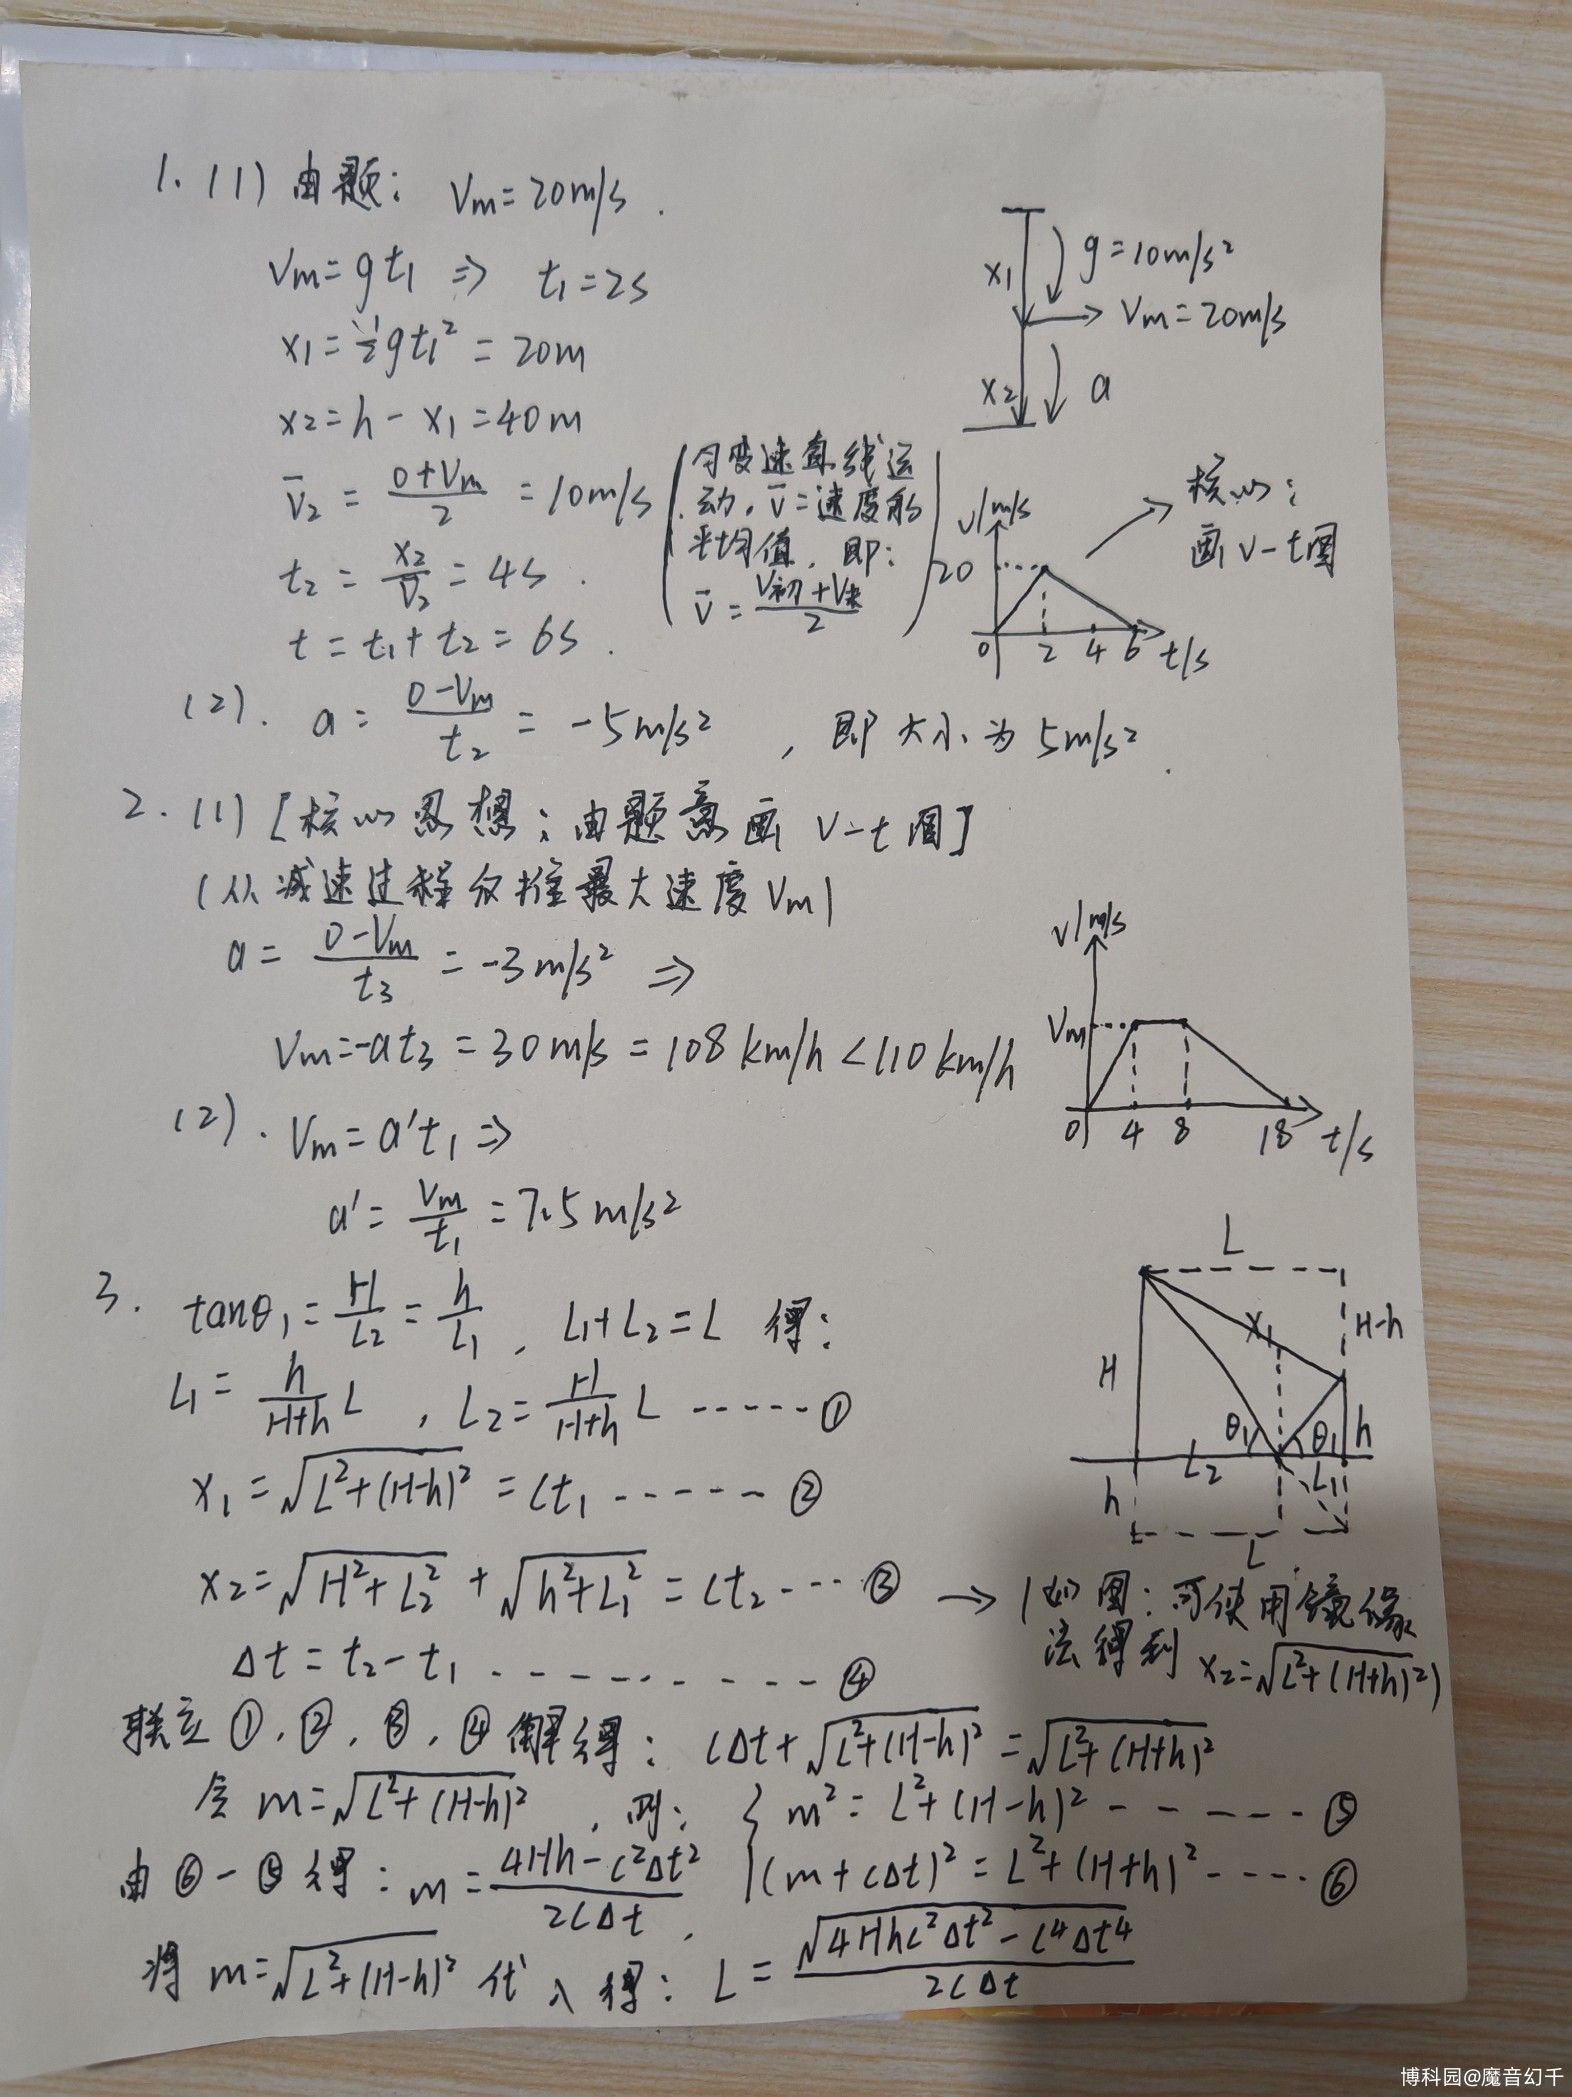 1. (1) 由题: Vm=20m/s.
Vm=gt₁ ⇒ t₁=2s
x₁=½gt₁²=20m
x₂=h-x₁=40m
V̄₂=(0+Vm)/2=10m/s
(匀变速直线运
动, V̄=速度的
平均值, 即:
V̄=(V初+V末)/2)
t₂=x₂/V̄₂=4s.
t=t₁+t₂=6s.
x₁ g=10m/s²
Vm=20m/s
x₂ a
核心:
画V-t图
V/m/s
20
0 2 4 6 t/s
(2). a=(0-Vm)/t₂=-5m/s², 即大小为5m/s².
2. (1) [核心思想: 由题意画V-t图]
(从减速过程反推最大速度Vm)
a=(0-Vm)/t₃=-3m/s² ⇒
Vm=-at₃=30m/s=108km/h<110km/h
V/m/s
Vm
0 4 8 18 t/s
(2). Vm=a't₁ ⇒
a'=Vm/t₁=7.5m/s²
3. tanθ₁=H/L₂=h/L₁, L₁+L₂=L 得:
L₁=h/(H+h) L, L₂=H/(H+h) L -----①
x₁=√(L²+(H-h)²)=ct₁ ------②
x₂=√(H²+L₂²)+√(h²+L₁²)=ct₂ ----③
→ (如图: 可使用镜像
法得到 x₂=√(L²+(H+h)²))
Δt=t₂-t₁ ----------④
L
x₁ H-h
H
θ₁ θ₁ h
L₂ L₁
h
L
联立①, ②, ③, ④解得: cΔt+√(L²+(H-h)²)=√(L²+(H+h)²)
令 m=√(L²+(H-h)²), 则: { m²=L²+(H-h)² ------⑤
(m+cΔt)²=L²+(H+h)² ----⑥
由⑥-⑤得: m=(4Hh-c²Δt²)/(2cΔt),
将 m=√(L²+(H-h)²) 代入得: L=√(4Hhc²Δt²-c⁴Δt⁴)/(2cΔt)
博科园@魔音幻千